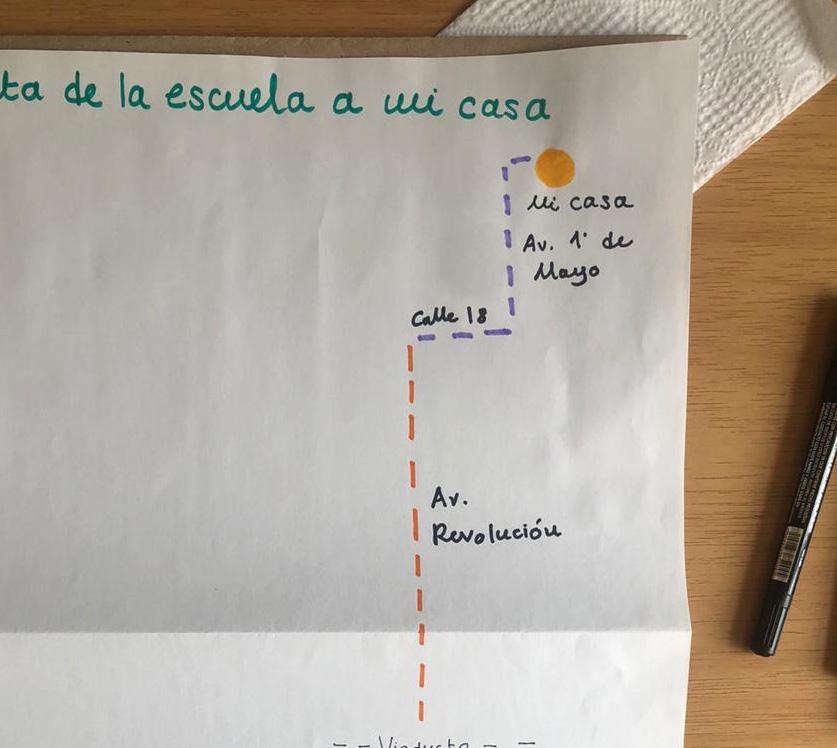 ta de la escuela a mi casa
Mi casa
Av. 1° de
Mayo
Calle 18
Av.
Revolución